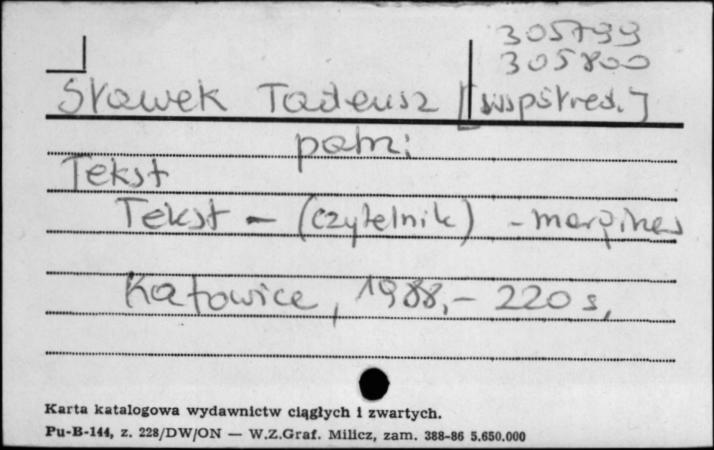 305799
305800
Sławek Tadeusz [współred.]
patrz:
Tekst
Tekst - (czytelnik) - margines
Katowice, 1988,- 220 s,
Karta katalogowa wydawnictw ciągłych i zwartych.
Pu-B-144, z. 228/DW/ON — W.Z.Graf. Milicz, zam. 388-86 5.650.000